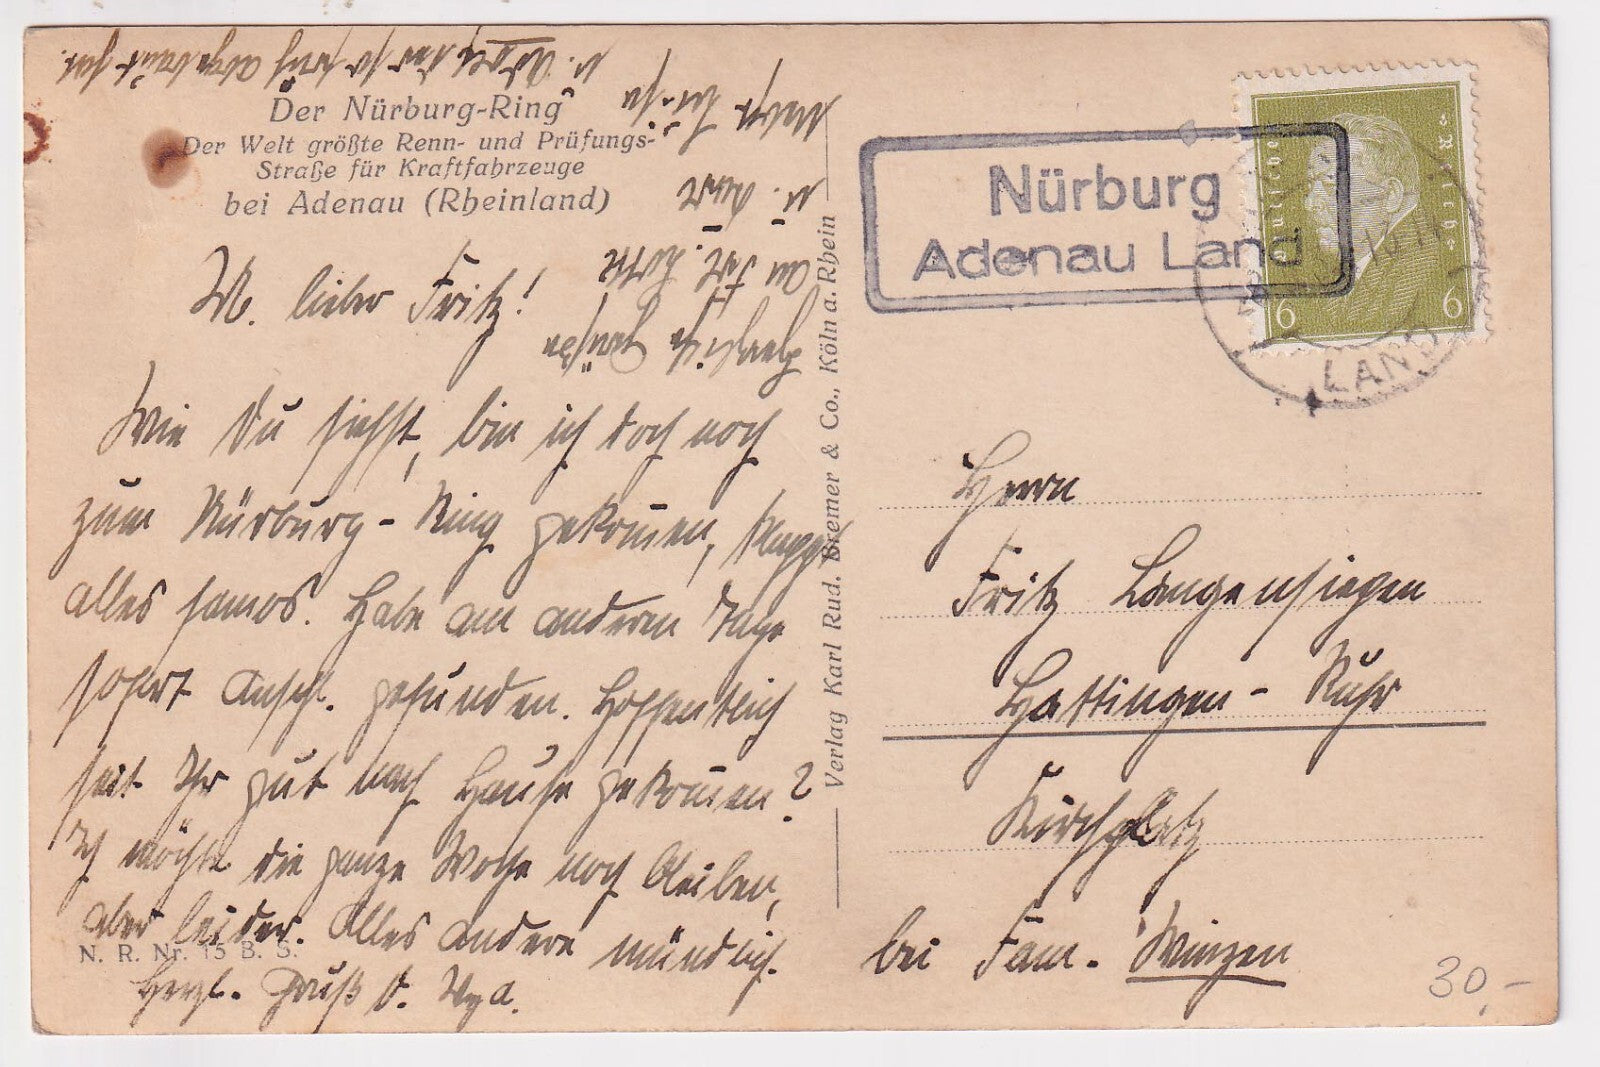 Der Nürburg-Ring
Der Welt größte Renn- und Prüfungs-
Straße für Kraftfahrzeuge
bei Adenau (Rheinland)
M. lieber Fritz!
Wie Du siehst, bin ich doch noch
zum Nürburg-Ring gekommen, klappt
alles famos. Habe am anderen Tage
sofort Anschl. gefunden. Hoffentlich
seit Ihr gut nach Hause gekommen?
Ich möchte die ganze Woche noch bleiben,
aber leider. Alles andere mündlich.
Herzl. Gruß D.
N. R. Nr. 15 B. S.
Verlag Karl Rud. Bremer & Co., Köln a. Rhein
Nürburg
Adenau Land
Deutsches Reich
6 6
LAND
Herrn
Fritz Langensiepen
Hattingen-Ruhr
Kirchplatz
bei Fam. Winzen
30,-